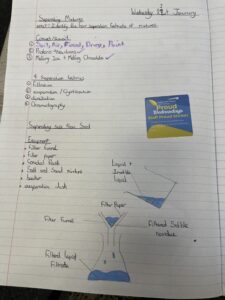 Wednesday 31st January
Separating Mixtures
WALT: Identify the four separation methods of mixtures
Connect/Recall:
① Salt, Air, Food, Drinks, Paint
② Physical Reactions
③ Melting Ice + Melting Chocolate
4 Separation Methods
① Filtration
② evaporation / Crystallisation
③ distillation
④ Chromatography
Proud
Wednesdays
Staff Proud Sticker
Separating Salt from Sand
Equipment
• Filter funnel
• Filter paper
• Conical flask
• Salt and Sand mixture
• beaker
• evaporation dish
Liquid +
Insoluble
Liquid
Filter Paper
Filter Funnel
Filtered Solid is
residue
Filtered liquid
Filtrate